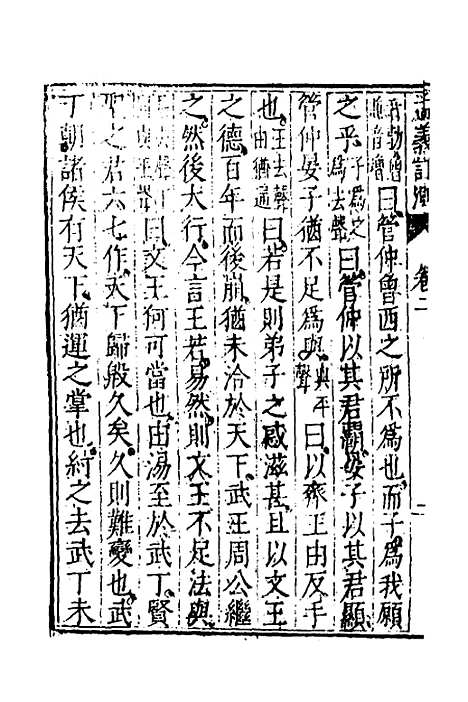 孟義訂測 卷二
曰管仲曾西之所不為也而子為我願
之乎子為之為去聲曰管仲以其君霸晏子以其君顯
管仲晏子猶不足為與與平聲曰以齊王由反手
也王去聲由猶通曰若是則弟子之惑滋甚且以文王
之德百年而後崩猶未洽於天下武王周公繼
之然後大行今言王若易然則文王不足法與
曰文王何可當也由湯至於武丁賢
聖之君六七作天下歸殷久矣久則難變也武
丁朝諸侯有天下猶運之掌也紂之去武丁未